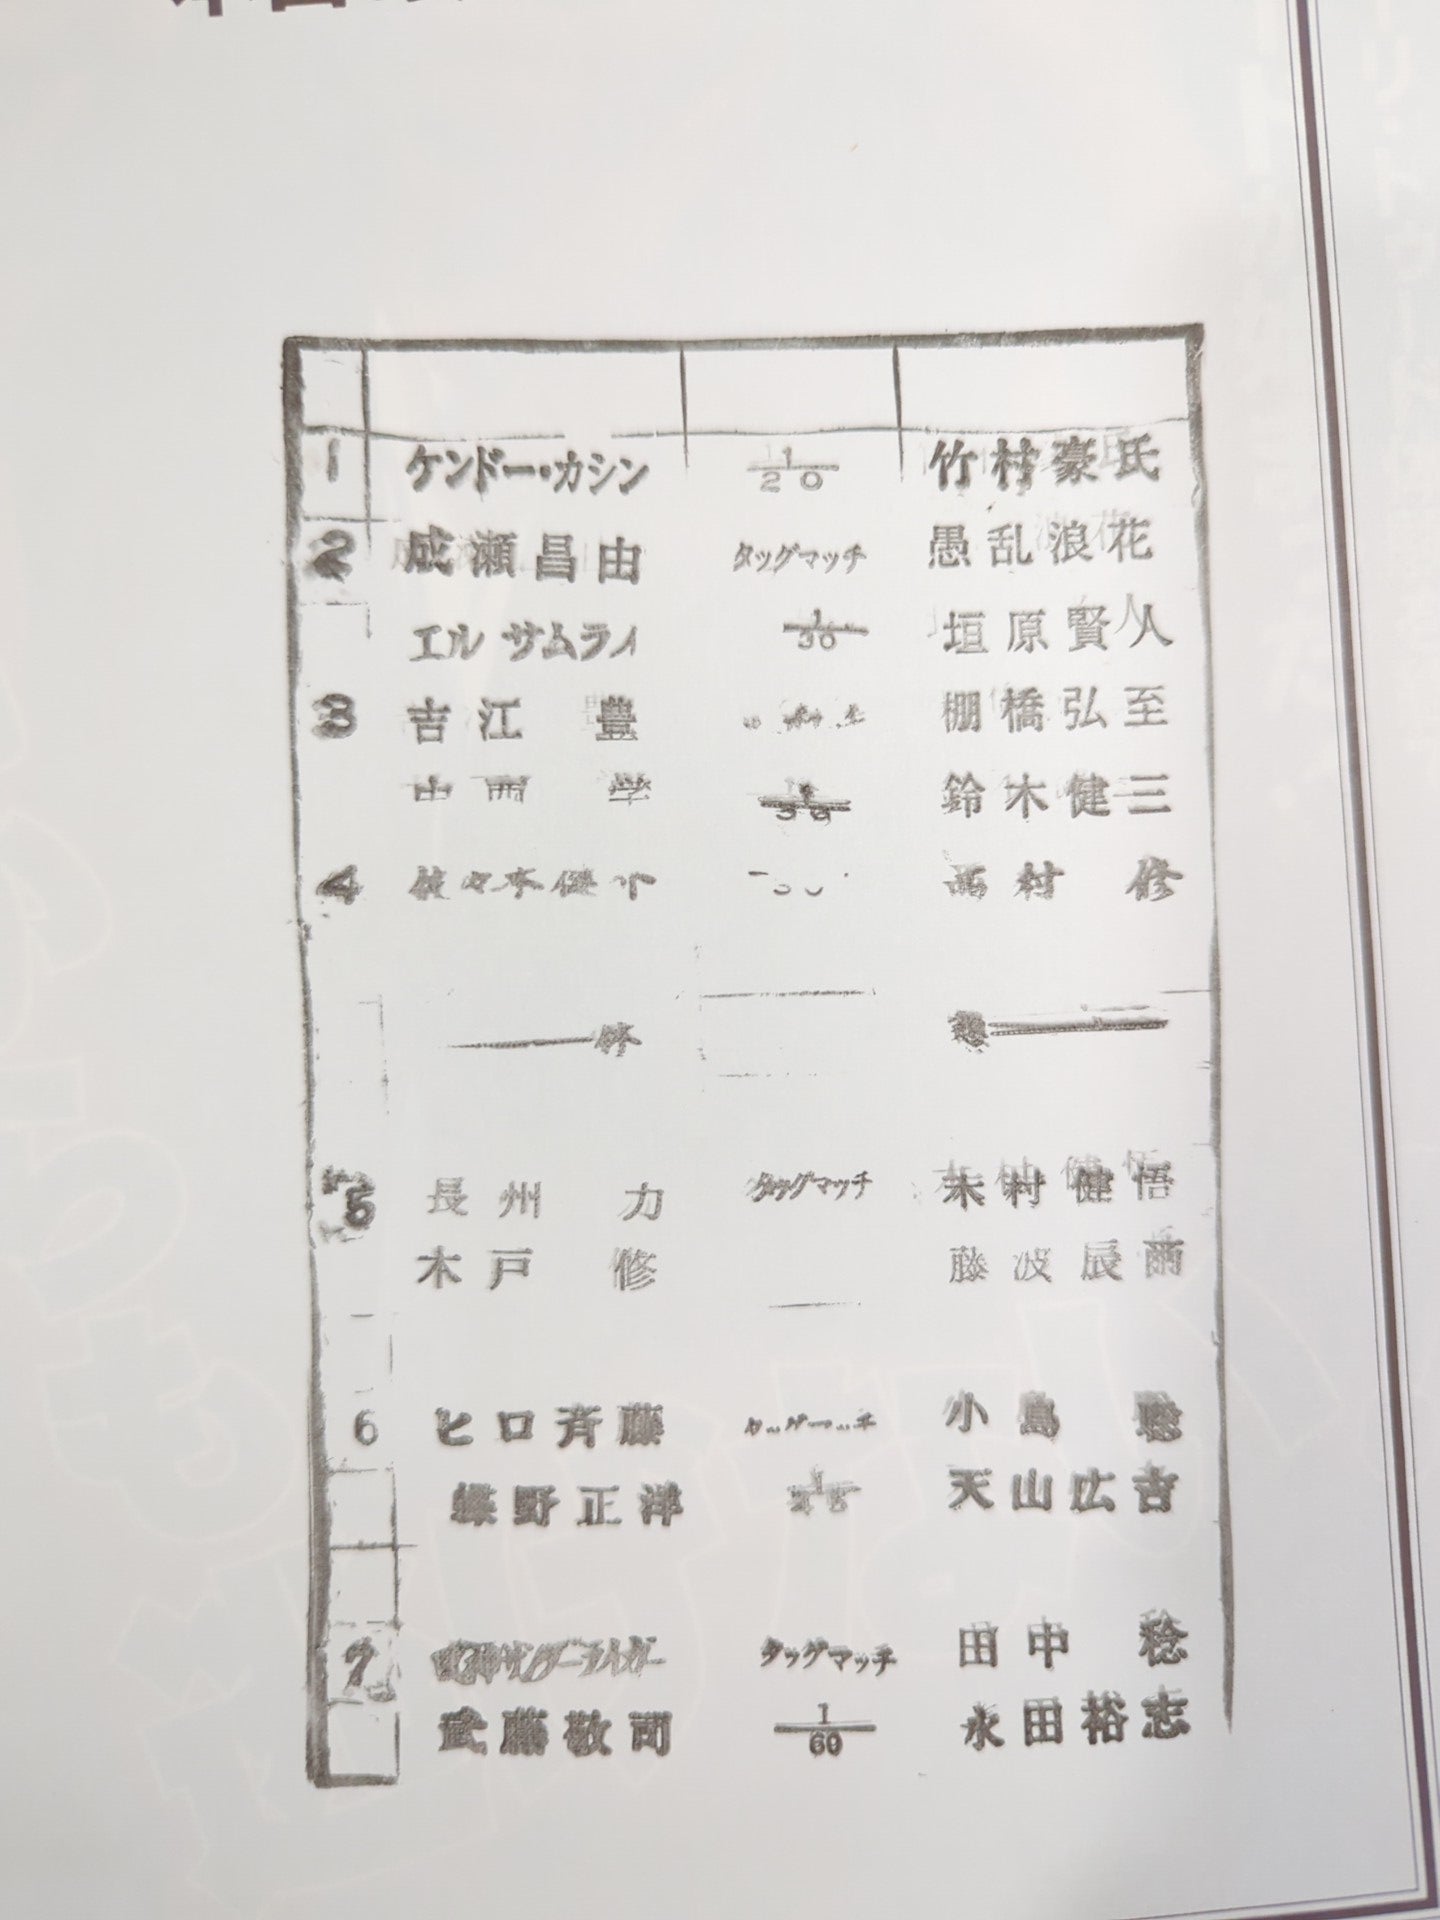 1 ケンドー・カシン 1/20 竹村豪氏
2 成瀬昌由 タッグマッチ 愚乱浪花
エル サムライ 1/30 垣原賢人
3 吉江 豊 棚橋弘至
中西 学 1/30 鈴木健三
4 佐々木健介 西村 修
休 憩
5 長州 力 タッグマッチ 木村健悟
木戸 修 藤波辰爾
6 ヒロ斉藤 タッグマッチ 小島 聡
蝶野正洋 天山広吉
7 タッグマッチ 田中 稔
武藤敬司 1/60 永田裕志